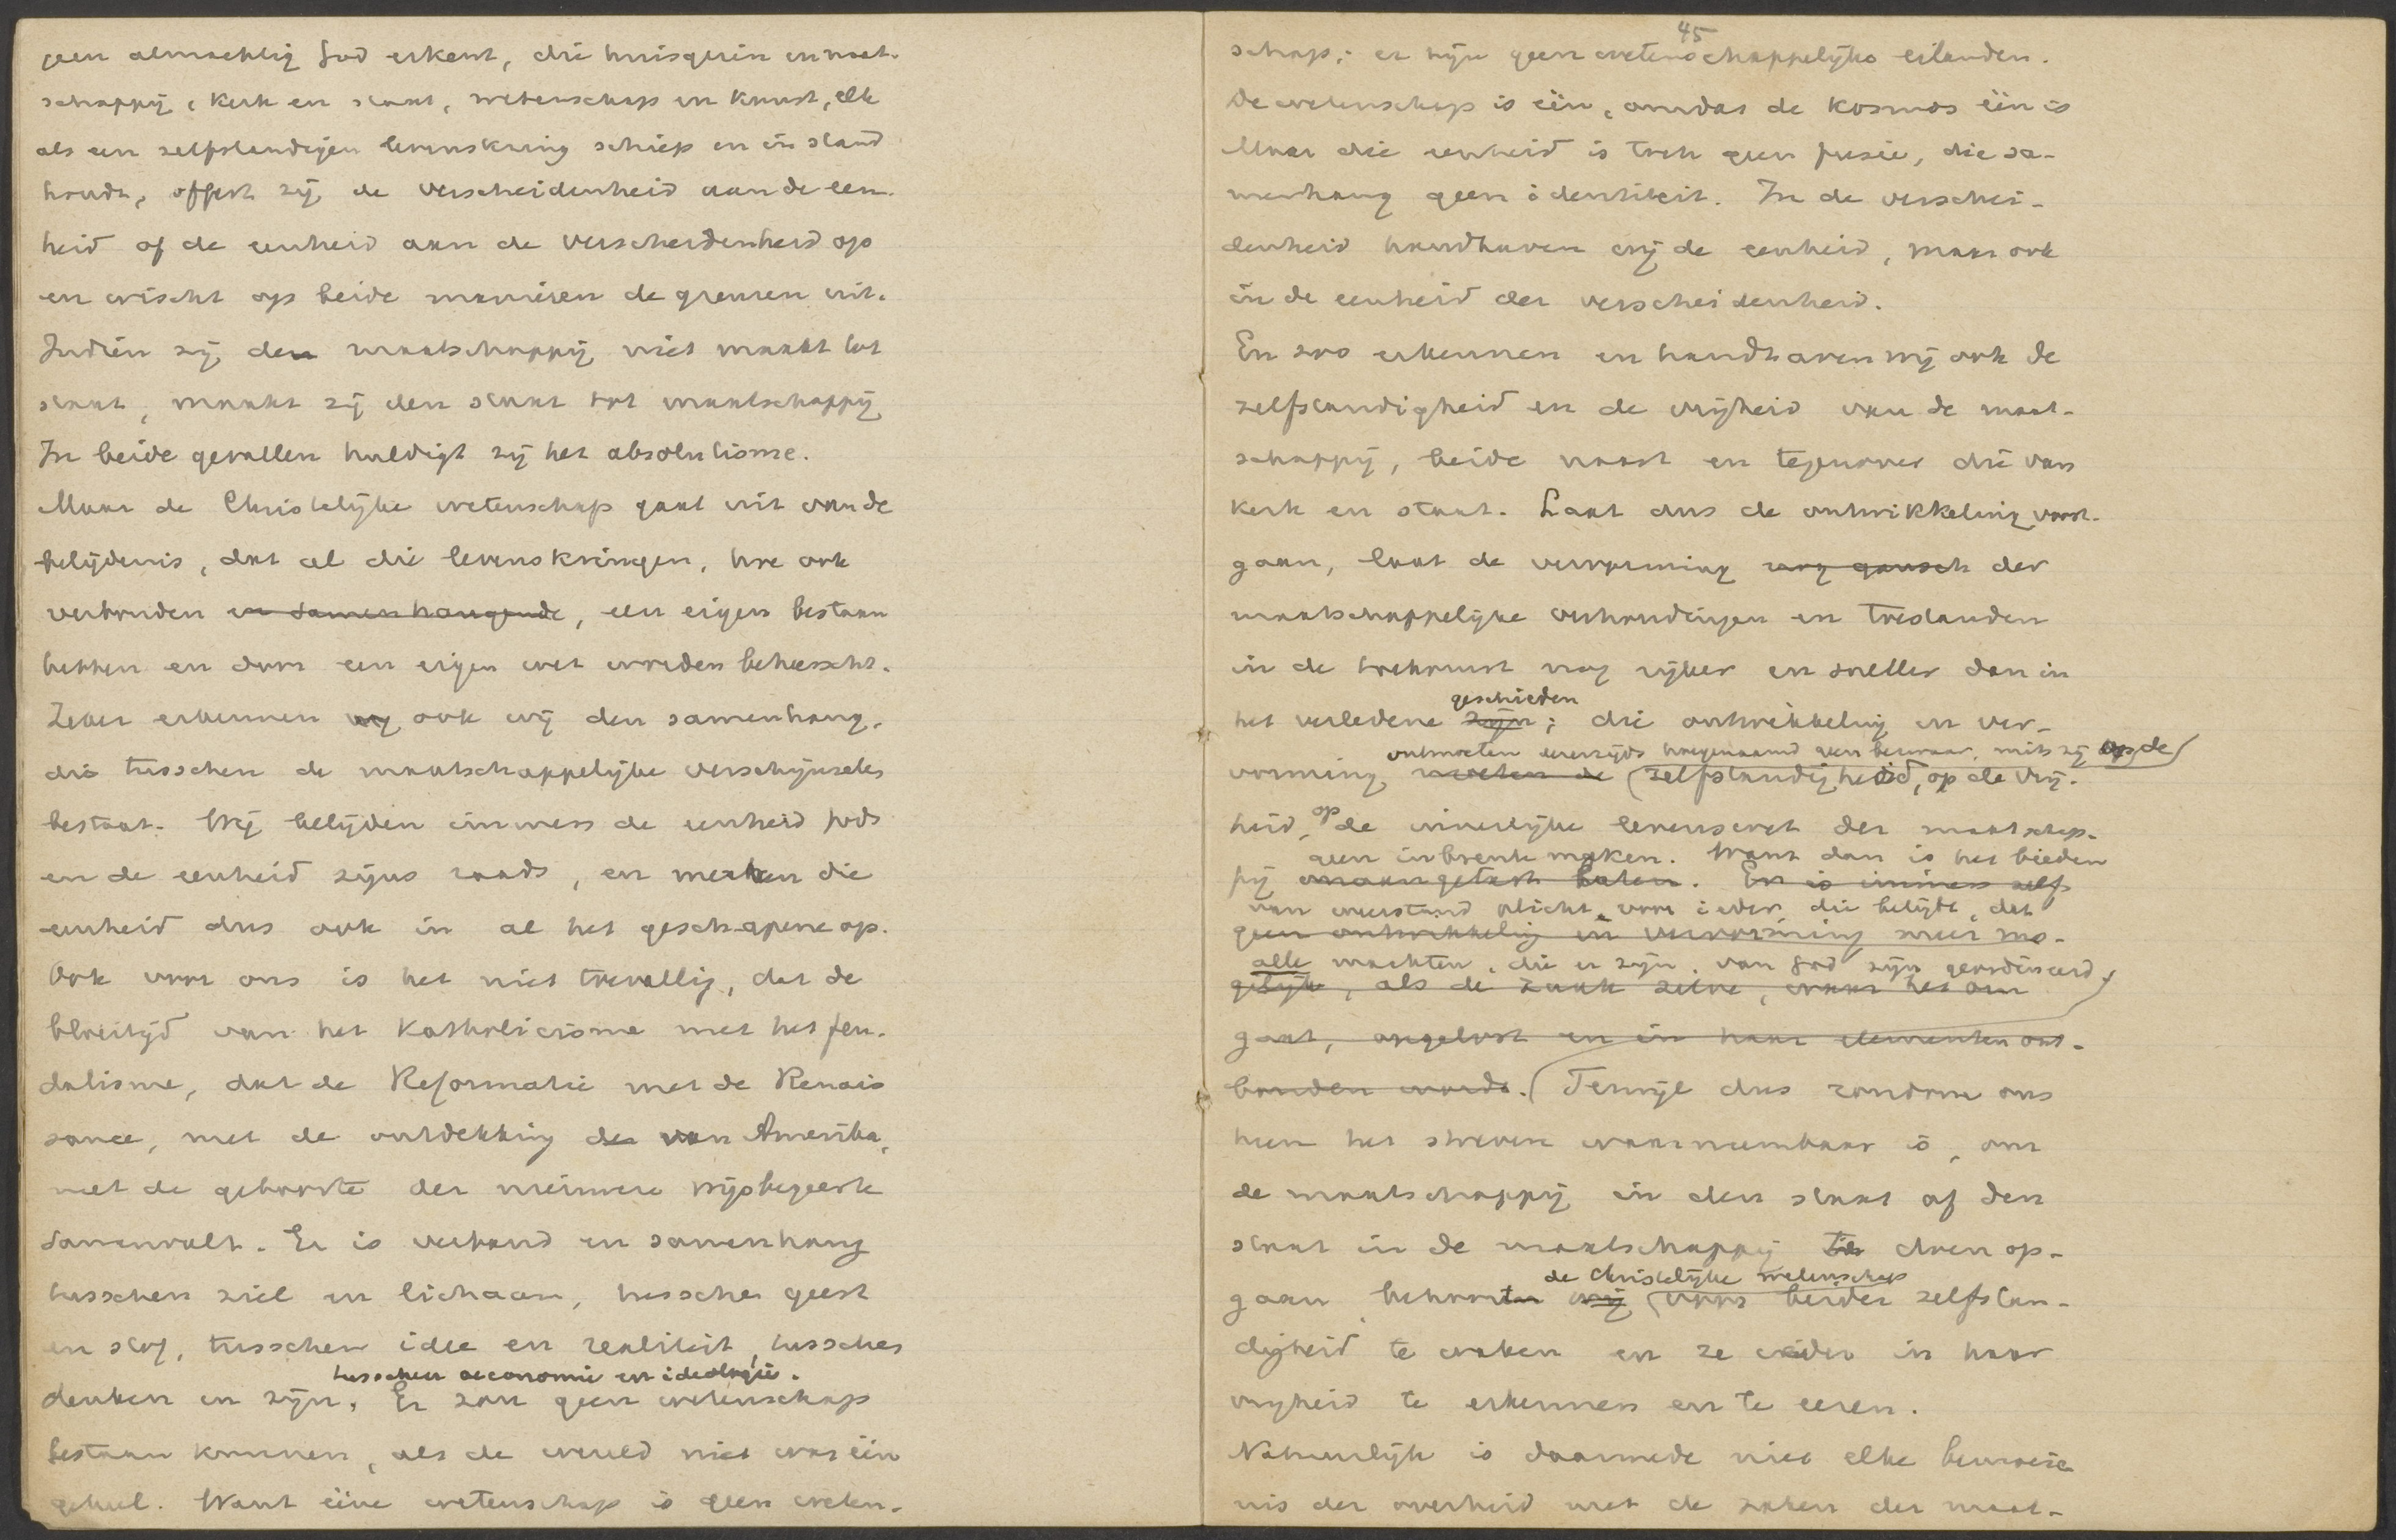 geen almachtig God erkent, die huisgezin en maat-
schappij, kerk en staat, wetenschap en kunst, elk
als een zelfstandigen levenskring schiep en in stand
houdt, offert zij de verscheidenheid aan de een-
heid of de eenheid aan de verscheidenheid op
en wischt op beide manieren de grenzen uit.
Indien zij de maatschappij niet maakt tot
staat, maakt zij den staat tot maatschappij
In beide gevallen huldigt zij het absolutisme.
Maar de Christelijke wetenschap gaat uit van de
belijdenis, dat al die levenskringen, hoe ook
verbonden en samenhangende, een eigen bestaan
hebben en door een eigen wet worden beheerscht.
Zeker erkennen ook wij den samenhang,
die tusschen de maatschappelijke verschijnselen
bestaat. Wij belijden immers de eenheid Gods
en de eenheid zijns raads, en merken die
eenheid dus ook in al het geschapene op.
Ook voor ons is het niet toevallig, dat de
bloeitijd van het Katholicisme met het feu-
dalisme, dat de Reformatie met de Renais
sance, met de ontdekking der van Amerika,
met de geboorte der nieuwere wijsbegeerte
samenvalt. Er is verband en samenhang
tusschen ziel en lichaam, tusschen geest
en stof, tusschen idee en realiteit, tusschen
tusschen oeconomie en ideologie.
denken en zijn. Er zou geen wetenschap
bestaan kunnen, als de wereld niet was één
geheel. Want ééne wetenschap is geen weten-
45
schap; er zijn geen wetenschappelijke eilanden.
De wetenschap is één, omdat de kosmos één is
Maar die eenheid is toch geen fusie, die sa-
menhang geen identiteit. In de verschei-
denheid handhaven wij de eenheid, maar ook
in de eenheid der verscheidenheid.
En zoo erkennen en handhaven wij ook de
zelfstandigheid en de vrijheid van de maat-
schappij, beide naast en tegenover die van
kerk en staat. Laat dus de ontwikkeling voort-
gaan, laat de vervorming nog gansch der
maatschappelijke verhoudingen en toestanden
in de toekomst nog rijker en sneller dan in
geschieden
het verledene zijn; die ontwikkeling en ver-
ontmoeten onzerzijds hoegenaamd geen bezwaar, mits zij op de
vorming moeten de zelfstandigheid, op de vrij-
heid, op de innerlijke levenswet der maatschap-
geen inbreuk maken. Want dan is het bieden
pij onaangetast laten. Er is immers zelfs
van weerstand plicht voor ieder, die belijdt, dat
geen ontwikkeling en vervorming meer mo-
alle machten, die er zijn, van God zijn geordineerd.
gelijk, als de zaak zelve, waar het om
gaat, opgelost en in haar elementen ont-
bonden wordt. Terwijl dus rondom ons
heen het streven waarneembaar is, om
de maatschappij in den staat of den
staat in de maatschappij te doen op-
de Christelijke wetenschap
gaan, behoort wij voor beider zelfstan-
digheid te waken en ze ieder in haar
vrijheid te erkennen en te eeren.
Natuurlijk is daarmede niet elke bemoeie
nis der overheid met de zaken der maat-